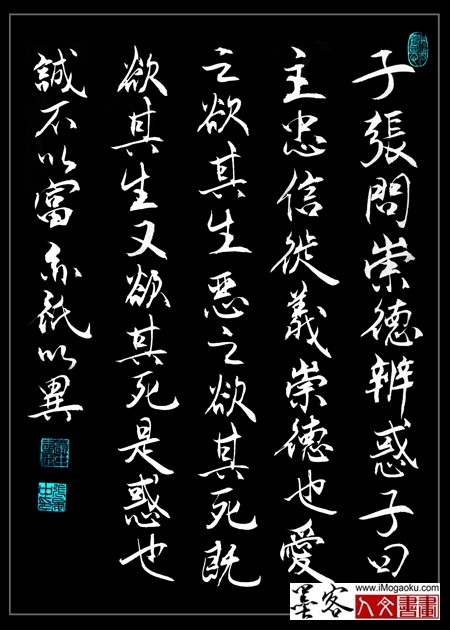 子張問崇德辨惑子曰
主忠信徙義崇德也愛
之欲其生惡之欲其死既
欲其生又欲其死是惑也
誠不以富亦祇以異
www.iMogaoku.com
墨客
人文書畫